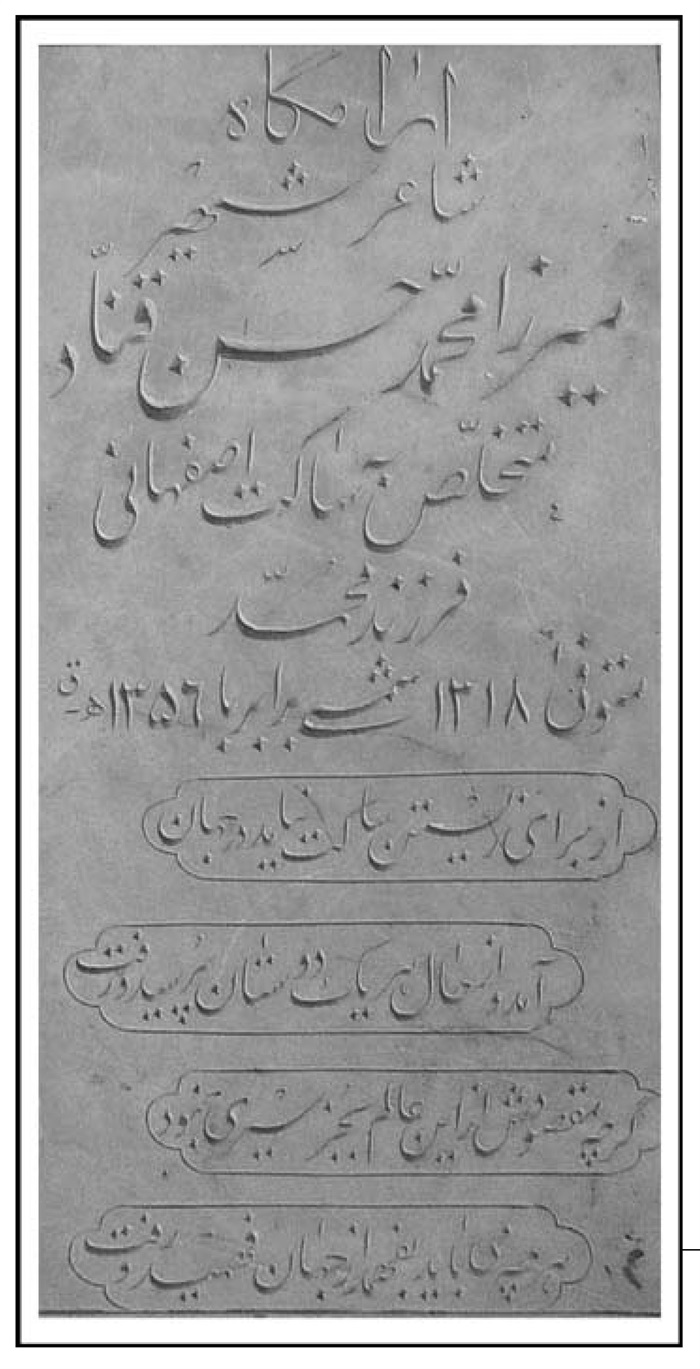 آرامگاه
شاعر شهیر
میرزا محمد حسن قناد
متخلص به ساکت اصفهانی
فرزند محمد
متوفی ۱۳۱۸ شمسی برابر با ۱۳۵۶ هـ ق
از برای زیستن ساکت نیامد در جهان
آمد و از حال هر یک دوستان پرسید و رفت
گرچه مقصودش از این عالم بجز سیری نبود
هر چه می‌باید بفهمد از جهان فهمید و رفت